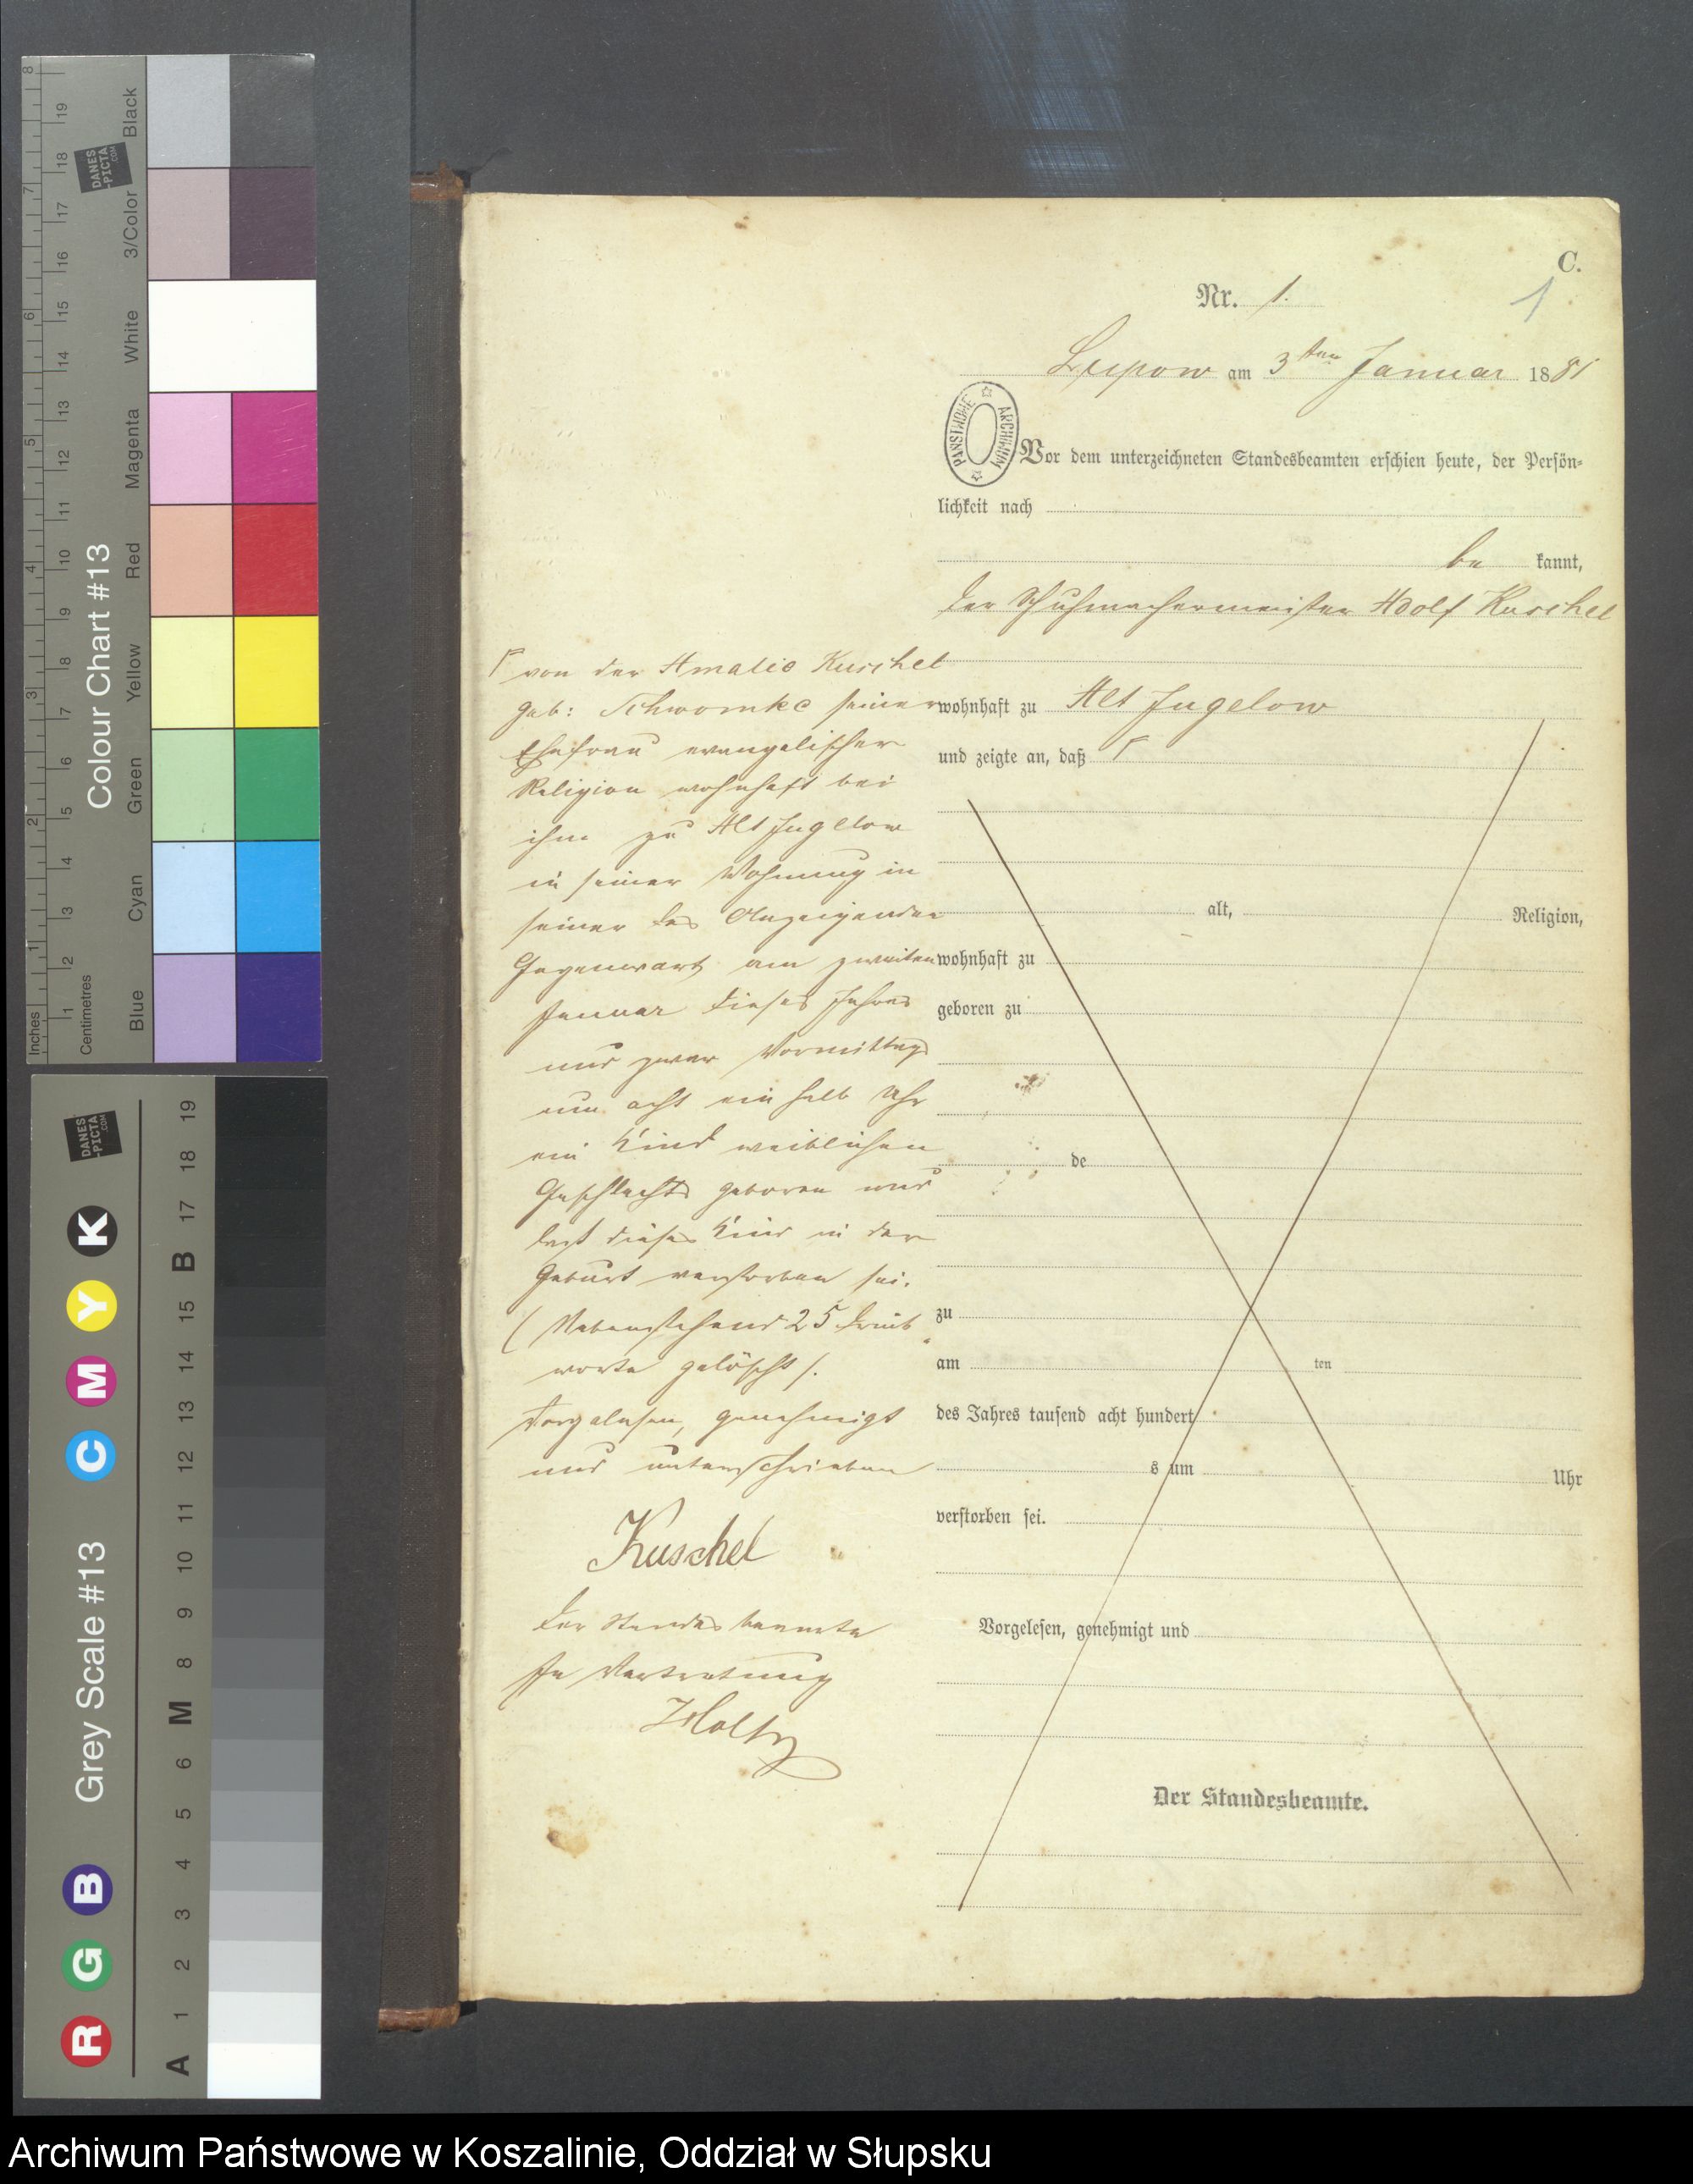 C.
1
Nr. 1.
Lupow am 3ten Januar 1881
PANSTWOWE ARCHIWUM
Vor dem unterzeichneten Standesbeamten erschien heute, der Persön-
lichkeit nach
be kannt,
der Schuhmachermeister Adolf Kuschel
wohnhaft zu Alt Jugelow
und zeigte an, daß Γ
alt, Religion,
wohnhaft zu
geboren zu
de
zu
am ten
des Jahres tausend acht hundert
s um Uhr
verstorben sei.
Vorgelesen, genehmigt und
Der Standesbeamte.
Γ von der Amalie Kuschel
geb: Schwomke seiner
Ehefrau evangelischer
Religion wohnhaft bei
ihm zu Alt Jugelow
in seiner Wohnung in
seiner des Anzeigenden
Gegenwart am zweiten
Januar dieses Jahres
und zwar Vormittags
um acht ein halb Uhr
ein Kind weiblichen
Geschlechts geboren und
daß dieses Kind in der
Geburt verstorben sei.
(Nebenstehend 25 Druck
worte gelöscht /.
Vorgelesen, genehmigt
und unterschrieben
Kuschel
Der Standesbeamte
In Vertretung
Holtz
Inches
1 2 3 4 5 6 7 8
Centimetres
1 2 3 4 5 6 7 8 9 10 11 12 13 14 15 16 17 18 19
Colour Chart #13
Blue Cyan Green Yellow Red Magenta White 3/Color Black
DANES
-PICTA
.COM
Grey Scale #13
R G B C M Y K
A 1 2 3 4 5 6 M 8 9 10 11 12 13 14 15 B 17 18 19
DANES
-PICTA
.COM
Archiwum Państwowe w Koszalinie, Oddział w Słupsku